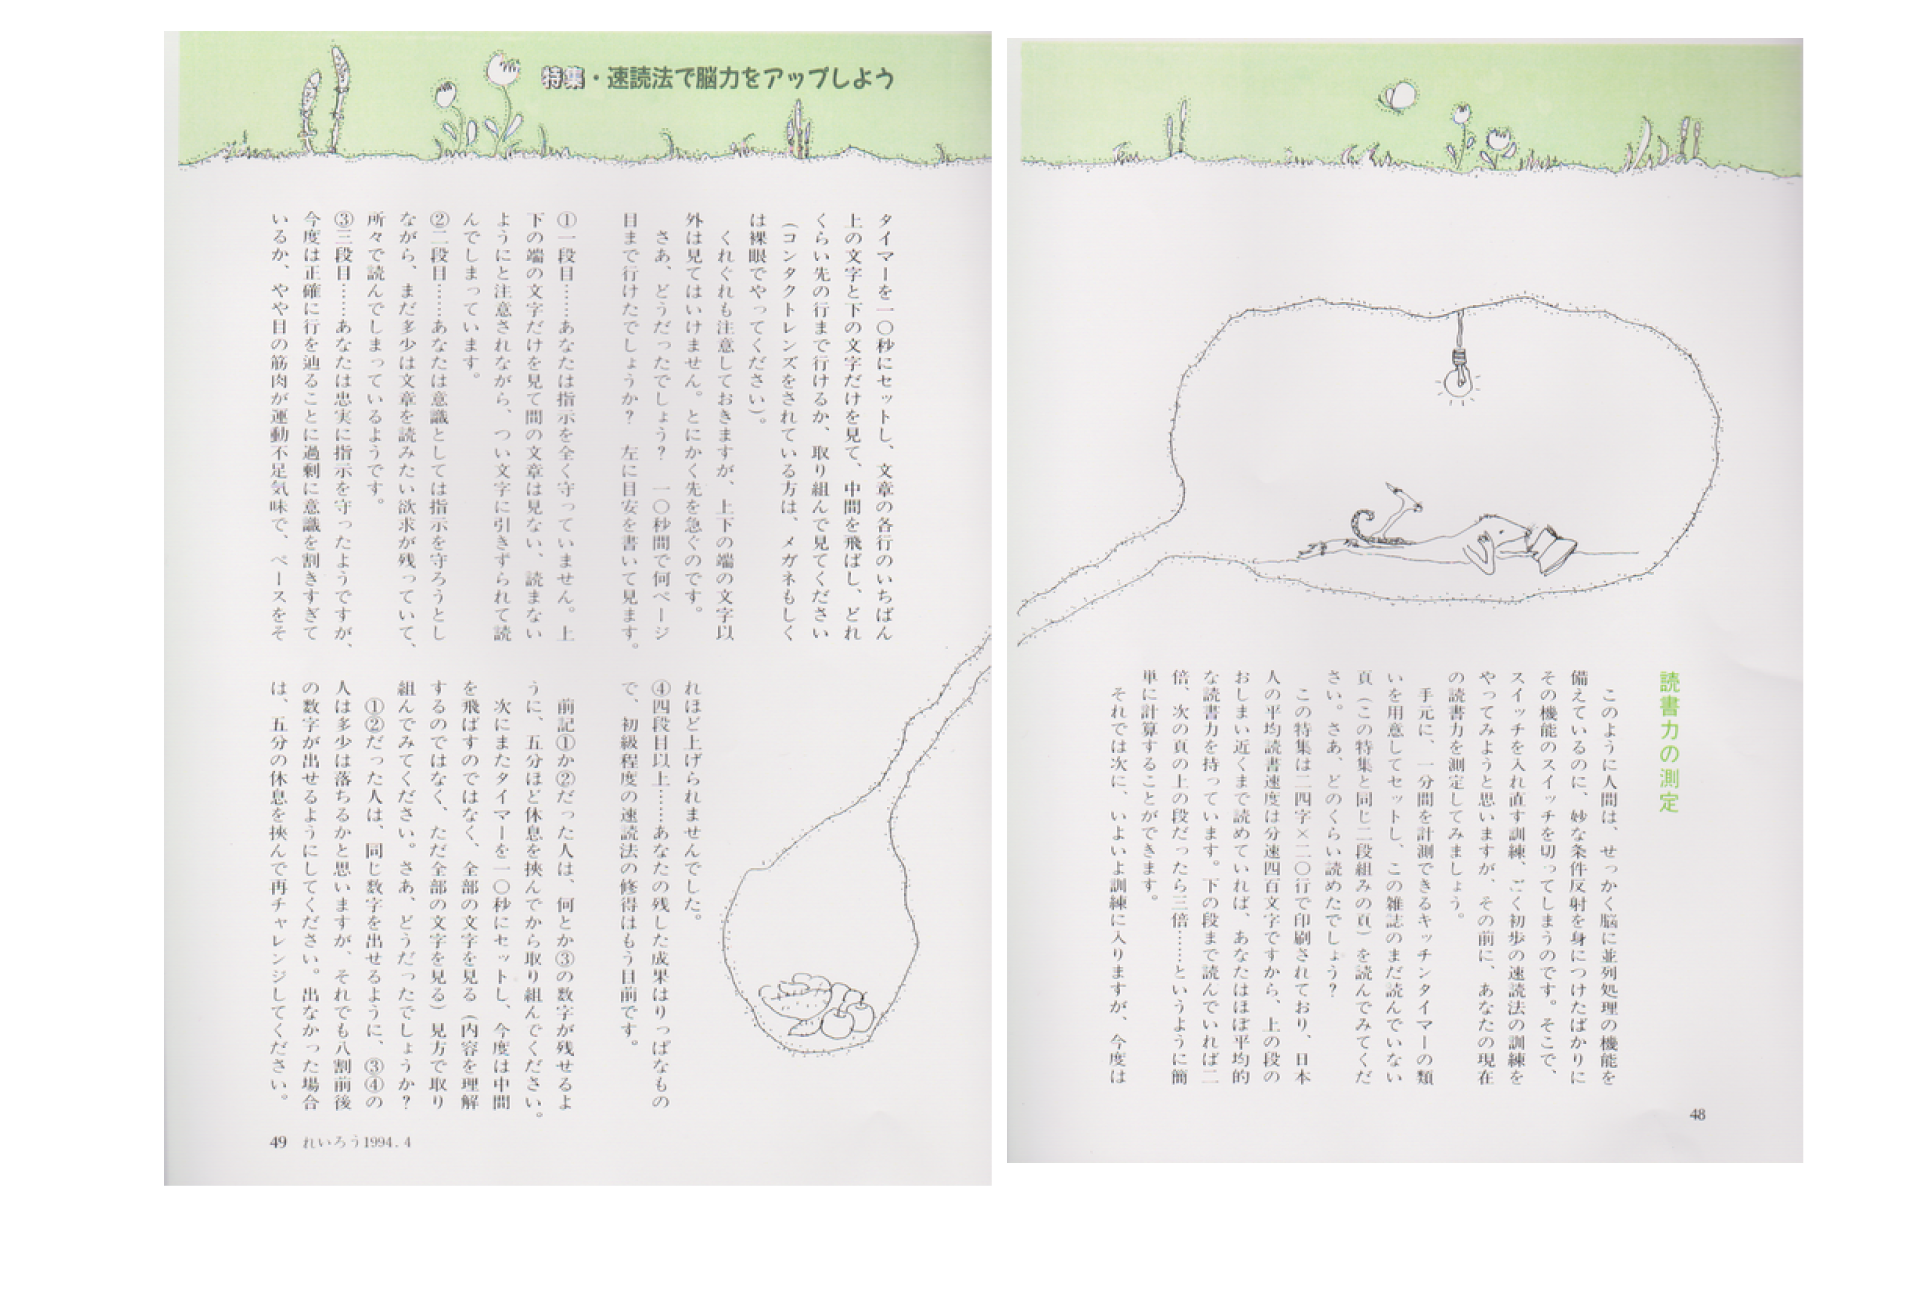 読書力の測定
このように人間は、せっかく脳に並列処理の機能を
備えているのに、妙な条件反射を身につけたばかりに
その機能のスイッチを切ってしまうのです。そこで、
スイッチを入れ直す訓練、ごく初歩の速読法の訓練を
やってみようと思いますが、その前に、あなたの現在
の読書力を測定してみましょう。
手元に、一分間を計測できるキッチンタイマーの類
いを用意してセットし、この雑誌のまだ読んでいない
頁（この特集と同じ二段組みの頁）を読んでみてくだ
さい。さあ、どのくらい読めたでしょう？
この特集は二四字×二〇行で印刷されており、日本
人の平均読書速度は分速四百文字ですから、上の段の
おしまい近くまで読めていれば、あなたはほぼ平均的
な読書力を持っています。下の段まで読んでいれば二
倍、次の頁の上の段だったら三倍……というように簡
単に計算することができます。
それでは次に、いよいよ訓練に入りますが、今度は
48
特集・速読法で脳力をアップしよう
タイマーを一〇秒にセットし、文章の各行のいちばん
上の文字と下の文字だけを見て、中間を飛ばし、どれ
くらい先の行まで行けるか、取り組んで見てください
（コンタクトレンズをされている方は、メガネもしく
は裸眼でやってください）。
くれぐれも注意しておきますが、上下の端の文字以
外は見てはいけません。とにかく先を急ぐのです。
さあ、どうだったでしょう？　一〇秒間で何ページ
目まで行けたでしょうか？　左に目安を書いて見ます。
①一段目……あなたは指示を全く守っていません。上
下の端の文字だけを見て間の文章は見ない、読まない
ようにと注意されながら、つい文字に引きずられて読
んでしまっています。
②二段目……あなたは意識としては指示を守ろうとし
ながら、まだ多少は文章を読みたい欲求が残っていて、
所々で読んでしまっているようです。
③三段目……あなたは忠実に指示を守ったようですが、
今度は正確に行を辿ることに過剰に意識を割きすぎて
いるか、やや目の筋肉が運動不足気味で、ペースをそ
れほど上げられませんでした。
④四段目以上……あなたの残した成果はりっぱなもの
で、初級程度の速読法の修得はもう目前です。
前記①か②だった人は、何とか③の数字が残せるよ
うに、五分ほど休息を挟んでから取り組んでください。
次にまたタイマーを一〇秒にセットし、今度は中間
を飛ばすのではなく、全部の文字を見る（内容を理解
するのではなく、ただ全部の文字を見る）見方で取り
組んでみてください。さあ、どうだったでしょうか？
①②だった人は、同じ数字を出せるように、③④の
人は多少は落ちるかと思いますが、それでも八割前後
の数字が出せるようにしてください。出なかった場合
は、五分の休息を挟んで再チャレンジしてください。
49 れいろう1994.4